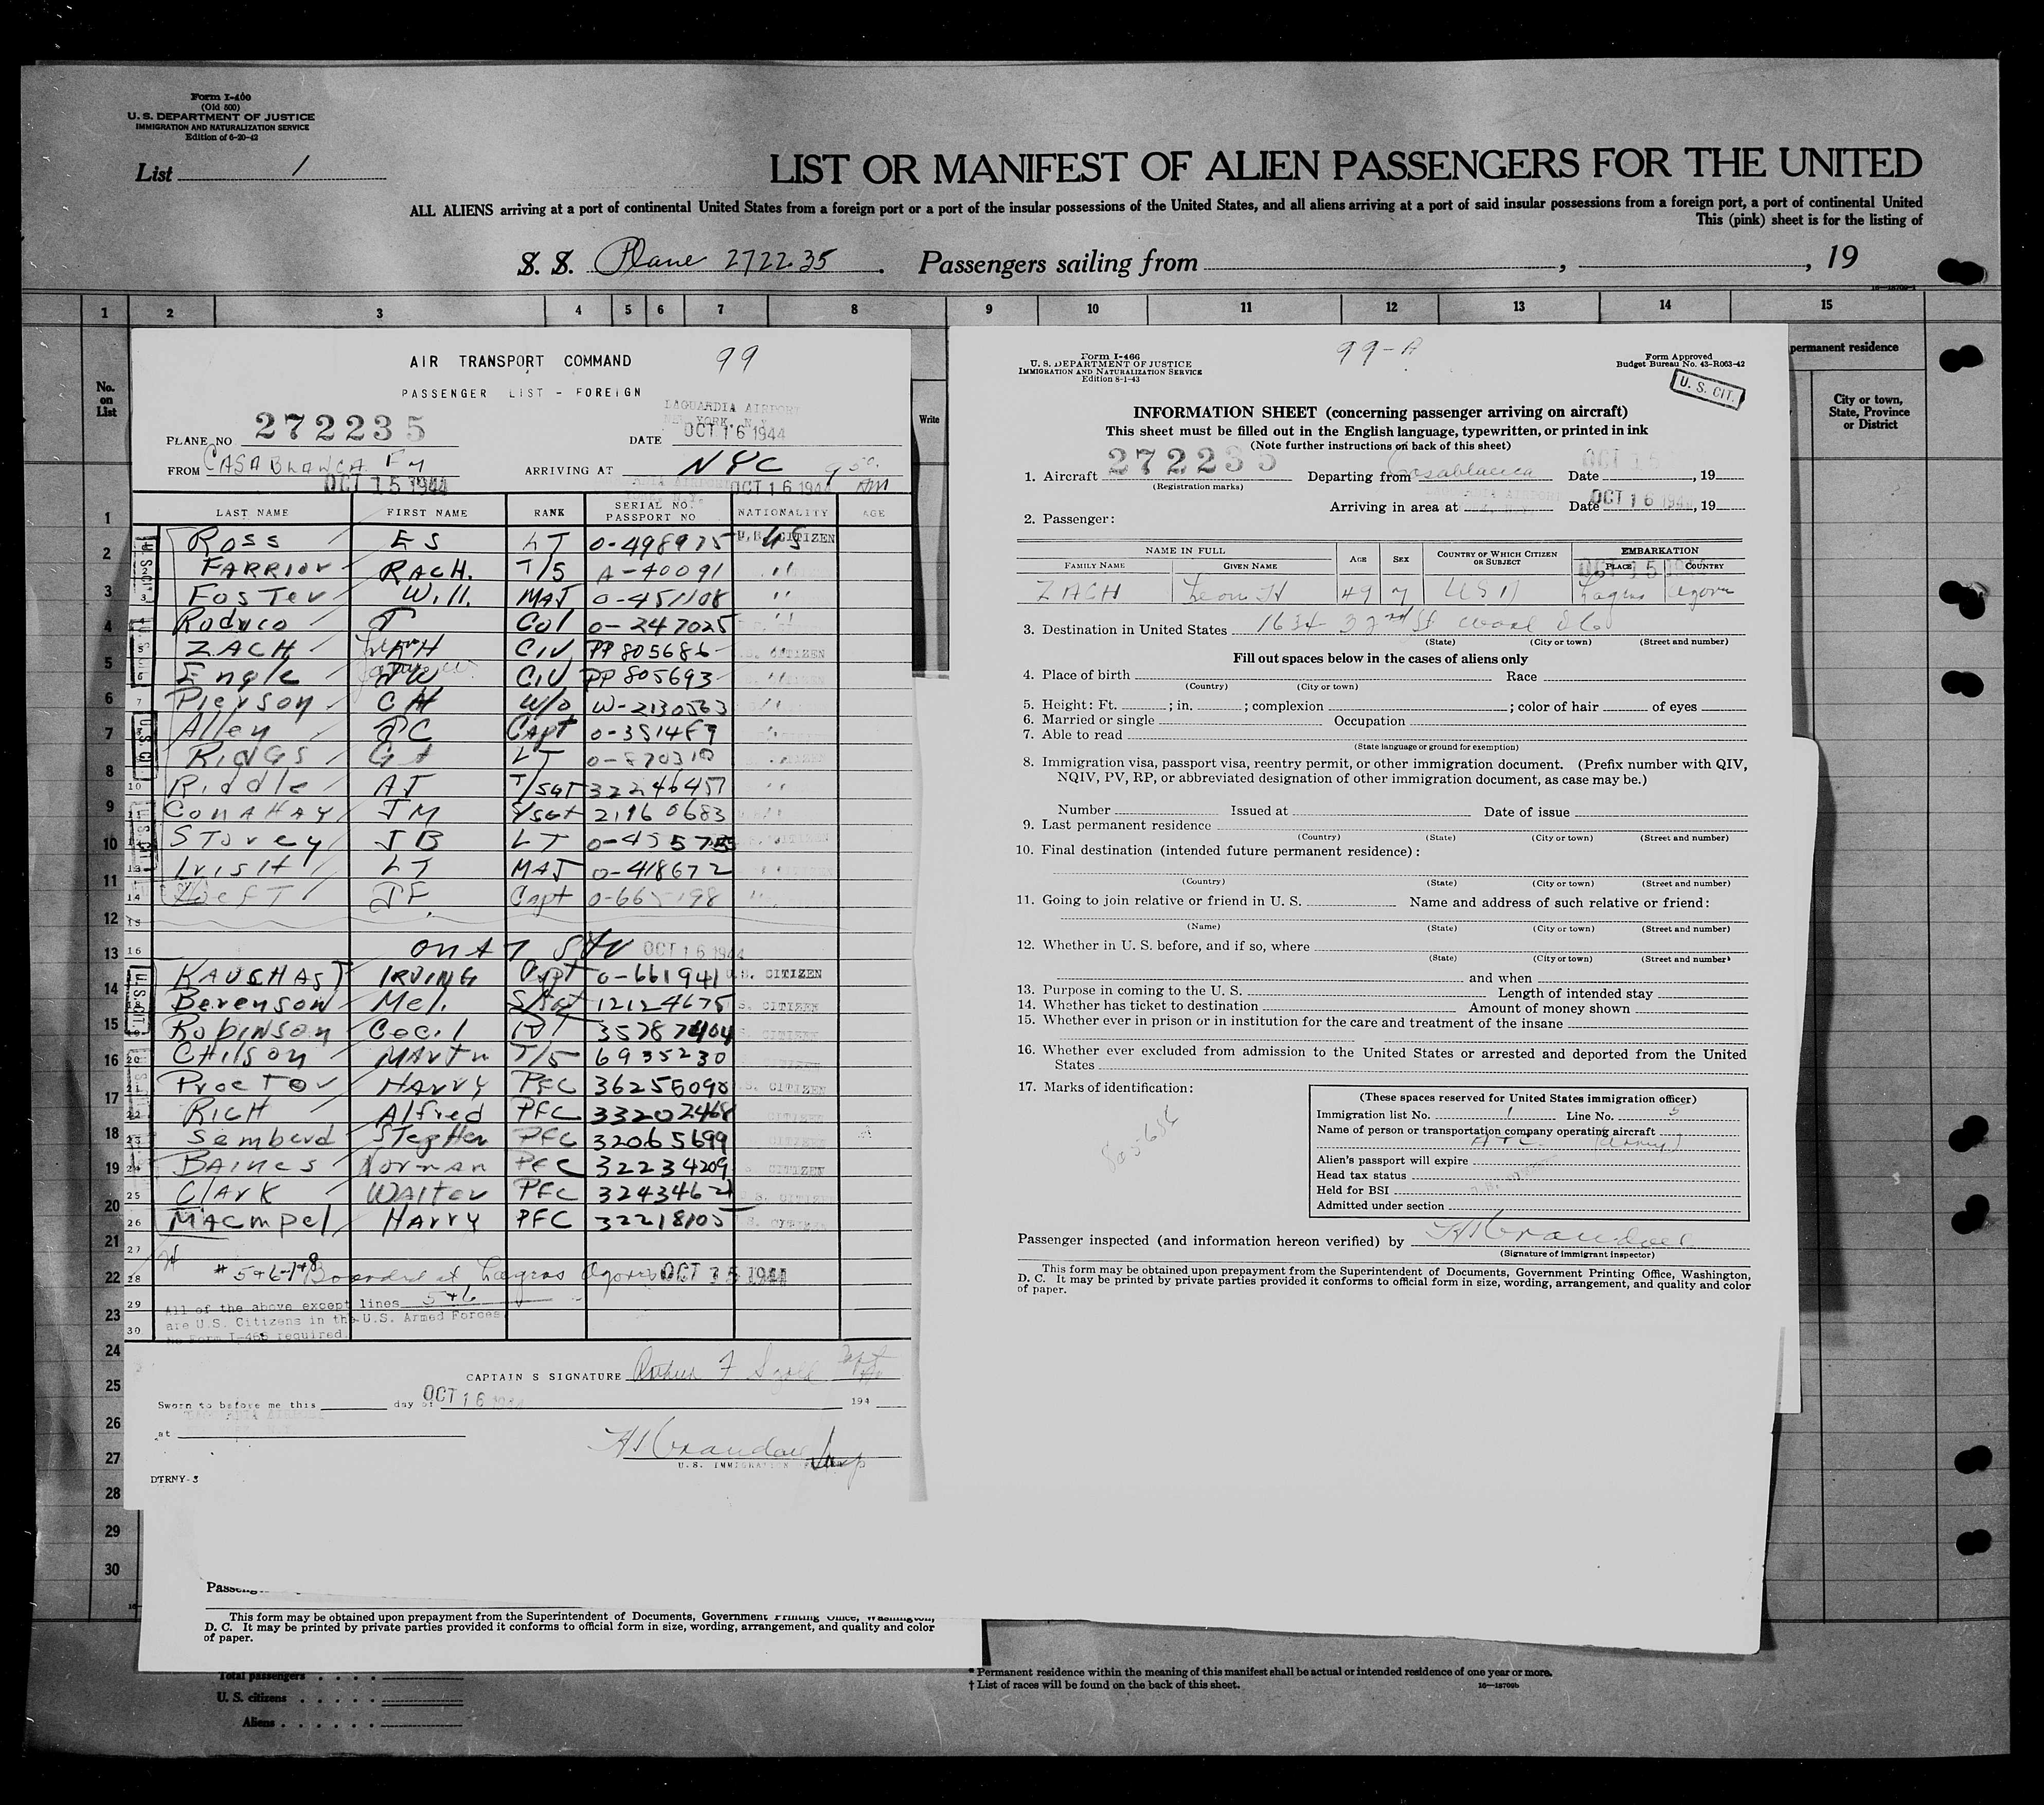 Form I-400
(Old 500)
U. S. DEPARTMENT OF JUSTICE
IMMIGRATION AND NATURALIZATION SERVICE
Edition of 6-20-42
List 1
LIST OR MANIFEST OF ALIEN PASSENGERS FOR THE UNITED
ALL ALIENS arriving at a port of continental United States from a foreign port or a port of the insular possessions of the United States, and all aliens arriving at a port of said insular possessions from a foreign port, a port of continental United
This (pink) sheet is for the listing of
S. S. Plane 272235. Passengers sailing from , , 19
1 2 3 4 5 6 7 8 9 10 11 12 13 14 15
No. on List
Write
permanent residence
City or town, State, Province or District
AIR TRANSPORT COMMAND 99
PASSENGER LIST - FOREIGN
LAGUARDIA AIRPORT
NEW YORK, N.Y.
PLANE NO 272235 DATE OCT 16 1944
FROM CASABLANCA FM ARRIVING AT NYC 9 50 AM
OCT 15 1944 OCT 16 1944
LAST NAME FIRST NAME RANK SERIAL NO. PASSPORT NO NATIONALITY AGE
Ross ES LT 0-498975 US U.S. CITIZEN
2 FARRIOR RACH. T/5 A-40091 "
3 Foster Will. MAJ 0-451108 "
Col 0-247025
5 ZACH H CIV PP 805686 "
6 Engle CIV PP 805693 "
7 Pierson CH W/O W-2130563 "
Alley PC Capt "
Ridgs LT
10 Riddle AJ T/SGT 32246457 "
11 Conahay JM S/SGT 21160683
12 Storey JB LT
13 Irish LT MAJ 0-418672 "
14 JF Capt "
15
16 OCT 16 1944
IRVING Capt 0-661941 U.S. CITIZEN
Berenson Mel. S/Sgt 12124675 U.S. CITIZEN
Robinson Cecil 35787404
20 Chilson Martn T/5 6935230
21 Proctor HARRY PFC 36256090 U.S. CITIZEN
22 RICH Alfred PFC 33202468
23 Semberd Stephen PFC 32065699
24 BAINES Norman PFC 32234209 CITIZEN
25 Clark Walter PFC U.S. CITIZEN
26 Macmpel HARRY PFC 32218105 U.S. CITIZEN
27
28 # 5+6 Boarded at Lagens Azores OCT 15 1944
29 All of the above except lines 5+6
are U.S. Citizens in the U.S. Armed Forces
30 No Form I-466 required.
CAPTAIN S SIGNATURE
Sworn to before me this day of OCT 16 1944 194
LAGUARDIA AIRPORT
at
H Crandall Insp
U.S. IMMIGRATION
DTRNY-3
1
2
3
4
5
6
7
8
9
10
11
12
13
14
15
16
17
18
19
20
21
22
23
24
25
26
27
28
29
30
Form I-466
U. S. DEPARTMENT OF JUSTICE
IMMIGRATION AND NATURALIZATION SERVICE
Edition 8-1-43
99-A
Form Approved
Budget Bureau No. 43-R063-42
U. S. CIT.
INFORMATION SHEET (concerning passenger arriving on aircraft)
This sheet must be filled out in the English language, typewritten, or printed in ink
(Note further instructions on back of this sheet)
1. Aircraft 272235 Departing from Casablanca Date OCT 15, 19
(Registration marks)
Arriving in area at Date OCT 16 1944, 19
2. Passenger:
NAME IN FULL AGE SEX COUNTRY OF WHICH CITIZEN OR SUBJECT EMBARKATION
FAMILY NAME GIVEN NAME PLACE COUNTRY
ZACH Leon H 49 M USA Lagens Azores
3. Destination in United States 1634 32nd St
(State) (City or town) (Street and number)
Fill out spaces below in the cases of aliens only
4. Place of birth Race
(Country) (City or town)
5. Height: Ft. ; in. ; complexion ; color of hair of eyes
6. Married or single Occupation
7. Able to read
(State language or ground for exemption)
8. Immigration visa, passport visa, reentry permit, or other immigration document. (Prefix number with QIV,
NQIV, PV, RP, or abbreviated designation of other immigration document, as case may be.)
Number Issued at Date of issue
9. Last permanent residence
(Country) (State) (City or town) (Street and number)
10. Final destination (intended future permanent residence):
(Country) (State) (City or town) (Street and number)
11. Going to join relative or friend in U. S. Name and address of such relative or friend:
(Name) (State) (City or town) (Street and number)
12. Whether in U. S. before, and if so, where
(State) (City or town) (Street and number)
and when
13. Purpose in coming to the U. S. Length of intended stay
14. Whether has ticket to destination Amount of money shown
15. Whether ever in prison or in institution for the care and treatment of the insane
16. Whether ever excluded from admission to the United States or arrested and deported from the United
States
17. Marks of identification:
(These spaces reserved for United States immigration officer)
Immigration list No. 1 Line No. 5
Name of person or transportation company operating aircraft
ATC (Army)
Alien's passport will expire
Head tax status
Held for BSI
Admitted under section
Passenger inspected (and information hereon verified) by H Crandall
(Signature of immigrant inspector)
This form may be obtained upon prepayment from the Superintendent of Documents, Government Printing Office, Washington,
D. C. It may be printed by private parties provided it conforms to official form in size, wording, arrangement, and quality and color
of paper.
This form may be obtained upon prepayment from the Superintendent of Documents, Government Printing Office, Washington,
D. C. It may be printed by private parties provided it conforms to official form in size, wording, arrangement, and quality and color
of paper.
Total passengers
U. S. citizens
Aliens
* Permanent residence within the meaning of this manifest shall be actual or intended residence of one year or more.
† List of races will be found on the back of this sheet.